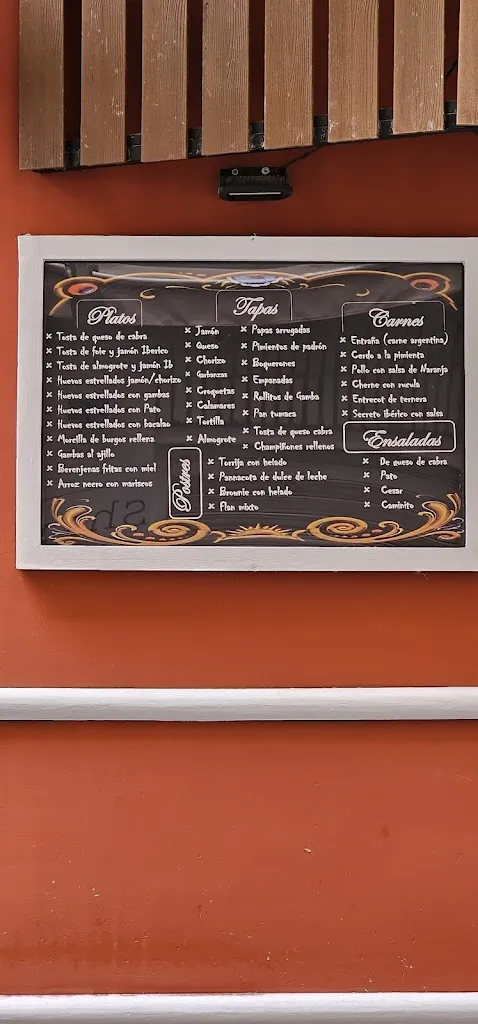 Platos
Tosta de queso de cabra
Tosta de foie y jamón Iberico
Tosta de almogrote y jamón Ib
Huevos estrellados jamón/chorizo
Huevos estrellados con gambas
Huevos estrellados con Pato
Huevos estrellados con bacalao
Morcilla de burgos rellena
Gambas al ajillo
Berenjenas fritas con miel
Arroz negro con mariscos
Tapas
Jamón
Queso
Chorizo
Garbanzas
Croquetas
Calamares
Tortilla
Almogrote
Papas arrugadas
Pimientos de padrón
Boquerones
Empanadas
Rollitos de Gamba
Pan tumaca
Tosta de queso cabra
Champiñones rellenos
Postres
Torrija con helado
Pannacota de dulce de leche
Brownie con helado
Flan mixto
Carnes
Entraña (carne argentina)
Cerdo a la pimienta
Pollo con salsa de Naranja
Cherne con rucula
Entrecot de ternera
Secreto ibérico con salsa
Ensaladas
De queso de cabra
Pato
Cesar
Caminito